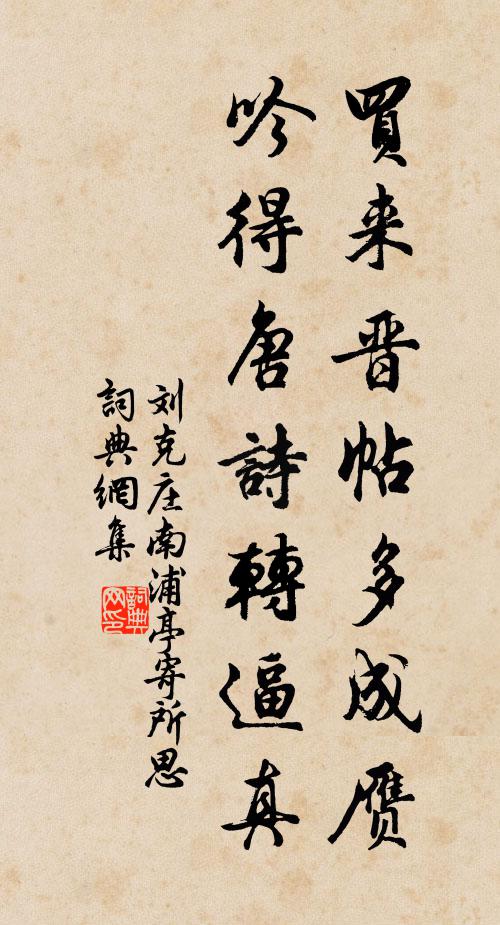 買来晋帖多成赝
吟得唐詩轉逼真
刘克庄南浦亭寄所思
詞典網集
詞典网印